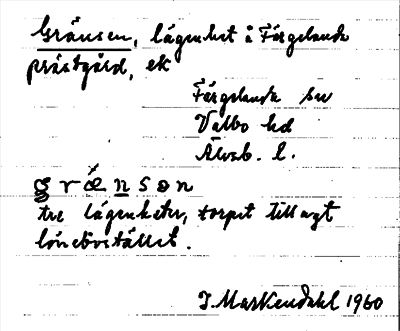 Gränsen, lägenhet å Färgelanda
prästgård, ek
Färgelanda sn
Valbo hd
Älvsb. l.
græ̀nsən
tre lägenheter, torpet tillagt
lönebostället.
J. Markendahl 1960